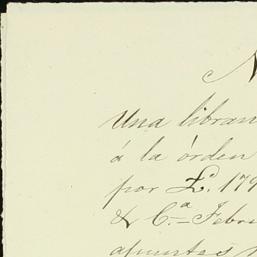 N
Una libran
á la órden
por £. 179
& C.ª Febru
apuntes